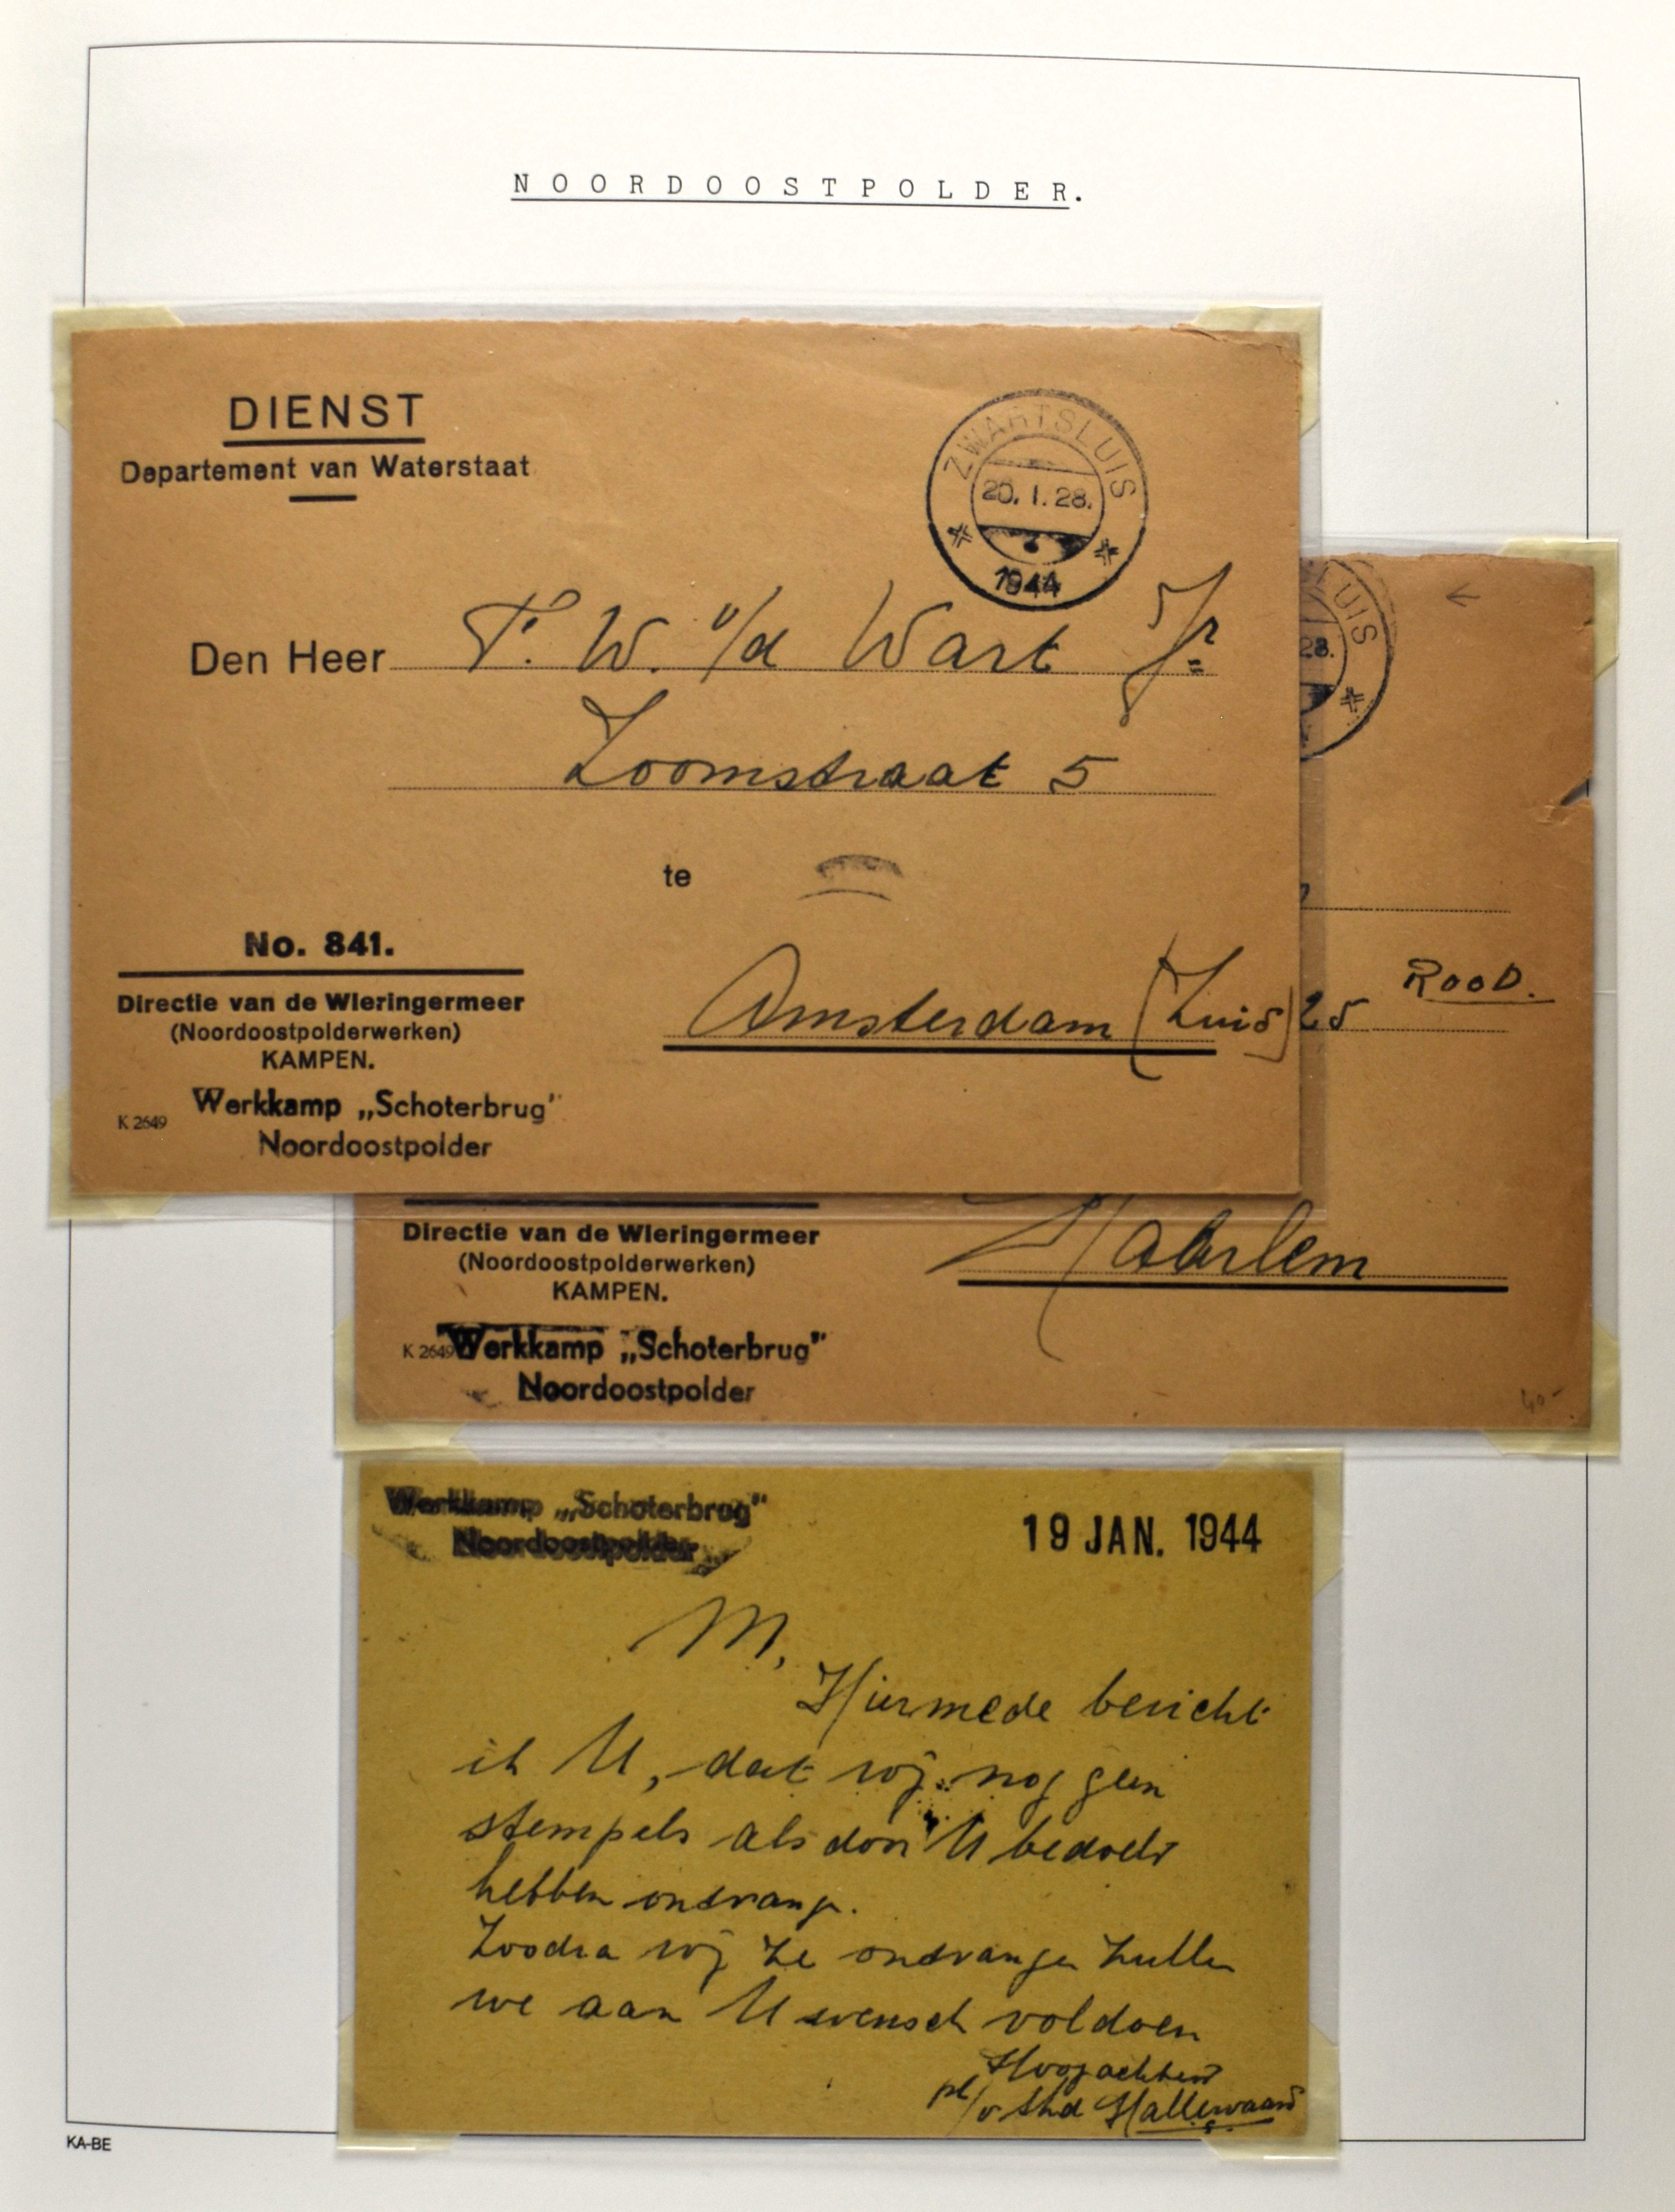 NOORDOOSTPOLDER.
DIENST
Departement van Waterstaat
ZWARTSLUIS
20. 1. 28.
1944
Den Heer T. W. v/d Wart Jr
Zoomstraat 5
te
No. 841.
Directie van de Wieringermeer
(Noordoostpolderwerken)
KAMPEN.
Amsterdam (Zuid)
K 2649
Werkkamp „Schoterbrug"
Noordoostpolder
LUIS
28.
25
ROOD.
Directie van de Wieringermeer
(Noordoostpolderwerken)
KAMPEN.
Haarlem
K 2649
Werkkamp „Schoterbrug"
Noordoostpolder
40-
Werkkamp „Schoterbrug"
Noordoostpolder
19 JAN. 1944
M,
Hiermede bericht
ik U, dat wij nog geen
stempels als door U bedoeld
hebben ontvangen.
Zoodra wij ze ontvangen zullen
we aan U wensch voldoen
Hoogachtend
Hallewaard
KA-BE